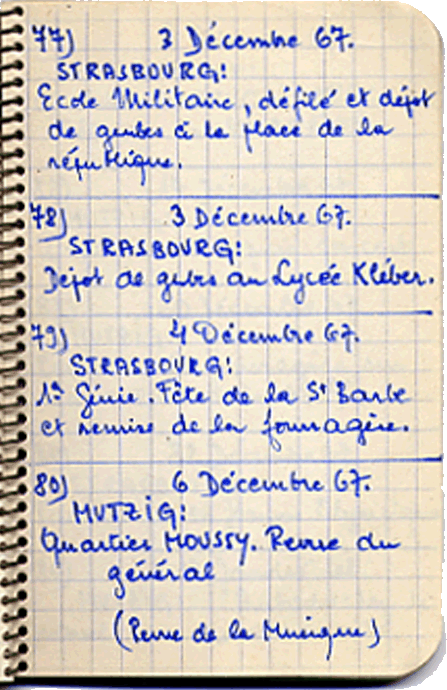 77) 3 Décembre 67.
STRASBOURG:
Ecole Militaire, défilé et dépot
de gerbes à la place de la
république.
78) 3 Décembre 67.
STRASBOURG:
Dépot de gerbes au Lycée Kléber.
79) 4 Décembre 67.
STRASBOURG:
1er Génie. Fête de la St Barbe
et remise de la fourragère.
80) 6 Décembre 67.
MUTZIG:
Quartier MOUSSY. Revue du
général
(Revue de la Musique)